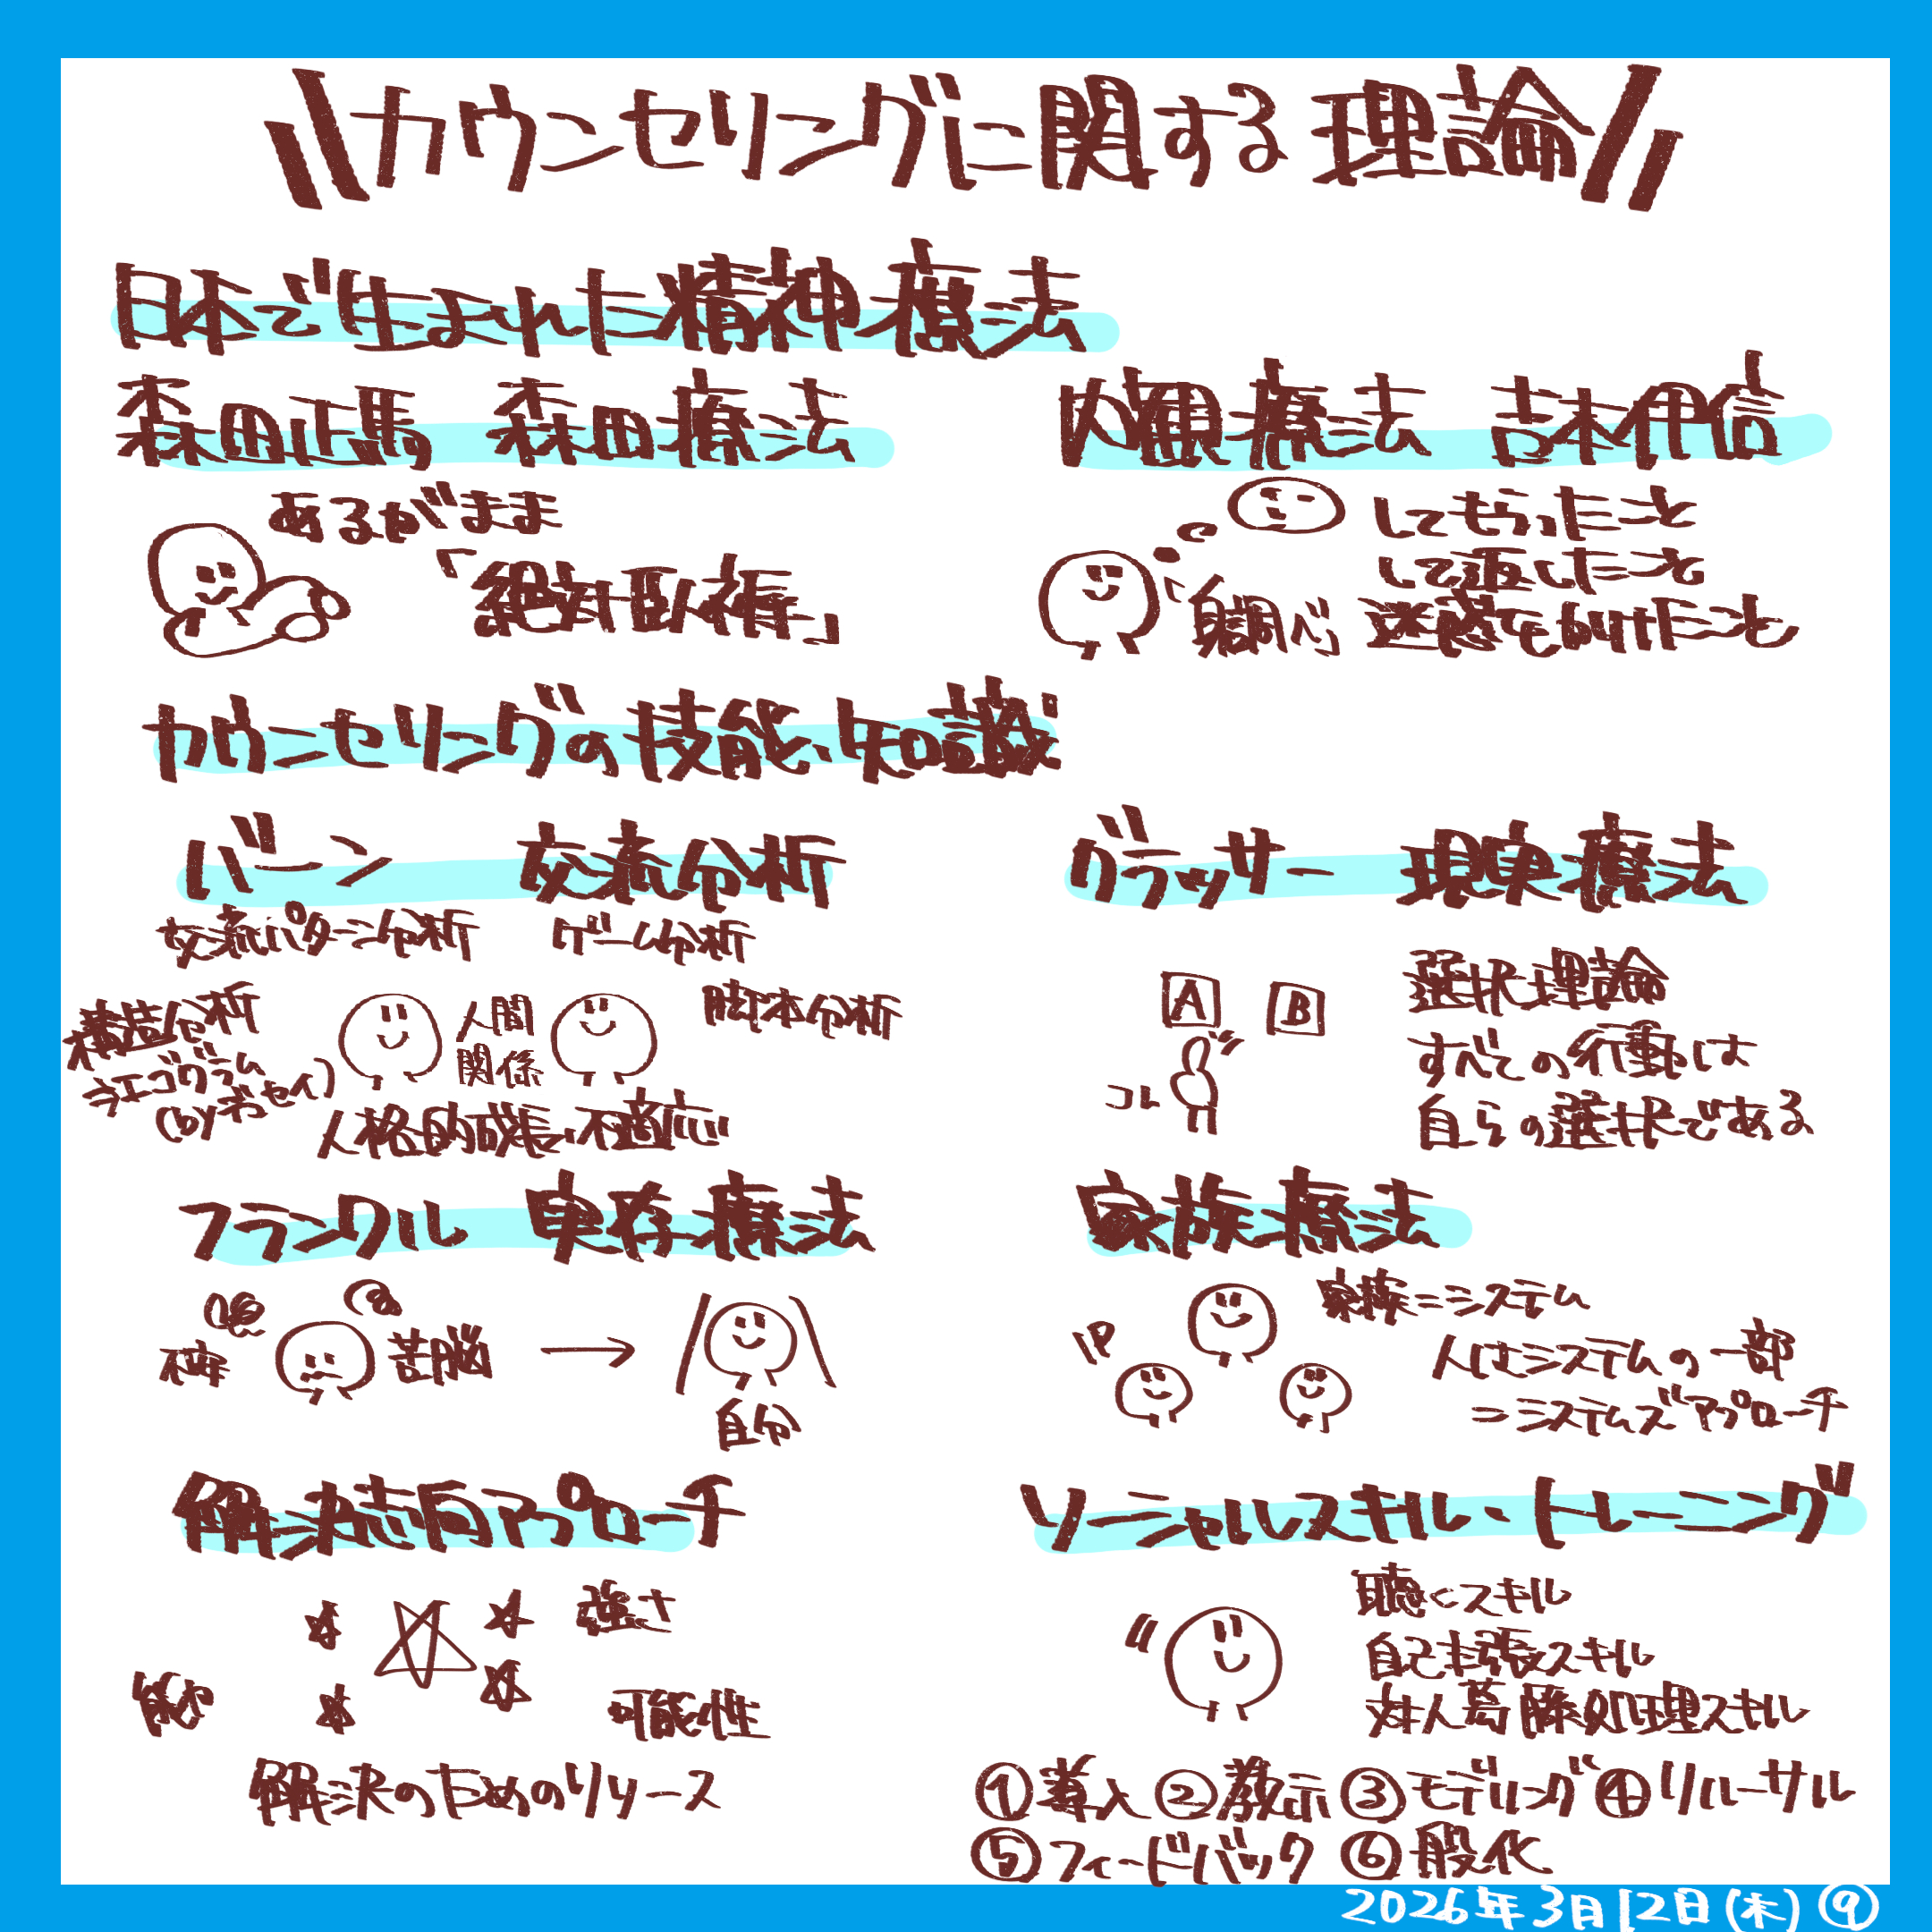 \\カウンセリングに関する理論//
日本で生まれた精神療法
森田正馬 森田療法
あるがまま
「絶対臥褥」
内観療法 吉本伊信
してもらったこと
して返したこと
迷惑をかけたこと
身調べ
カウンセリングの技能、知識
バーン 交流分析
交流パターン分析 ゲーム分析
構造分析
エゴグラム
(byデュセイ)
人間
関係
脚本分析
人格的成長、不適応
グラッサー 現実療法
A B
コレ
選択理論
すべての行動は
自らの選択である
フランクル 実存療法
苦脳
→
自分
家族療法
IP
家族=システム
人はシステムの一部
=システムズアプローチ
解決志向アプローチ
強さ
可能性
解決のためのリソース
ソーシャルスキル・トレーニング
聴くスキル
自己主張スキル
対人葛藤処理スキル
①導入②教示③モデリング④リハーサル
⑤フィードバック ⑥般化
2026年3月12日(木)⑨